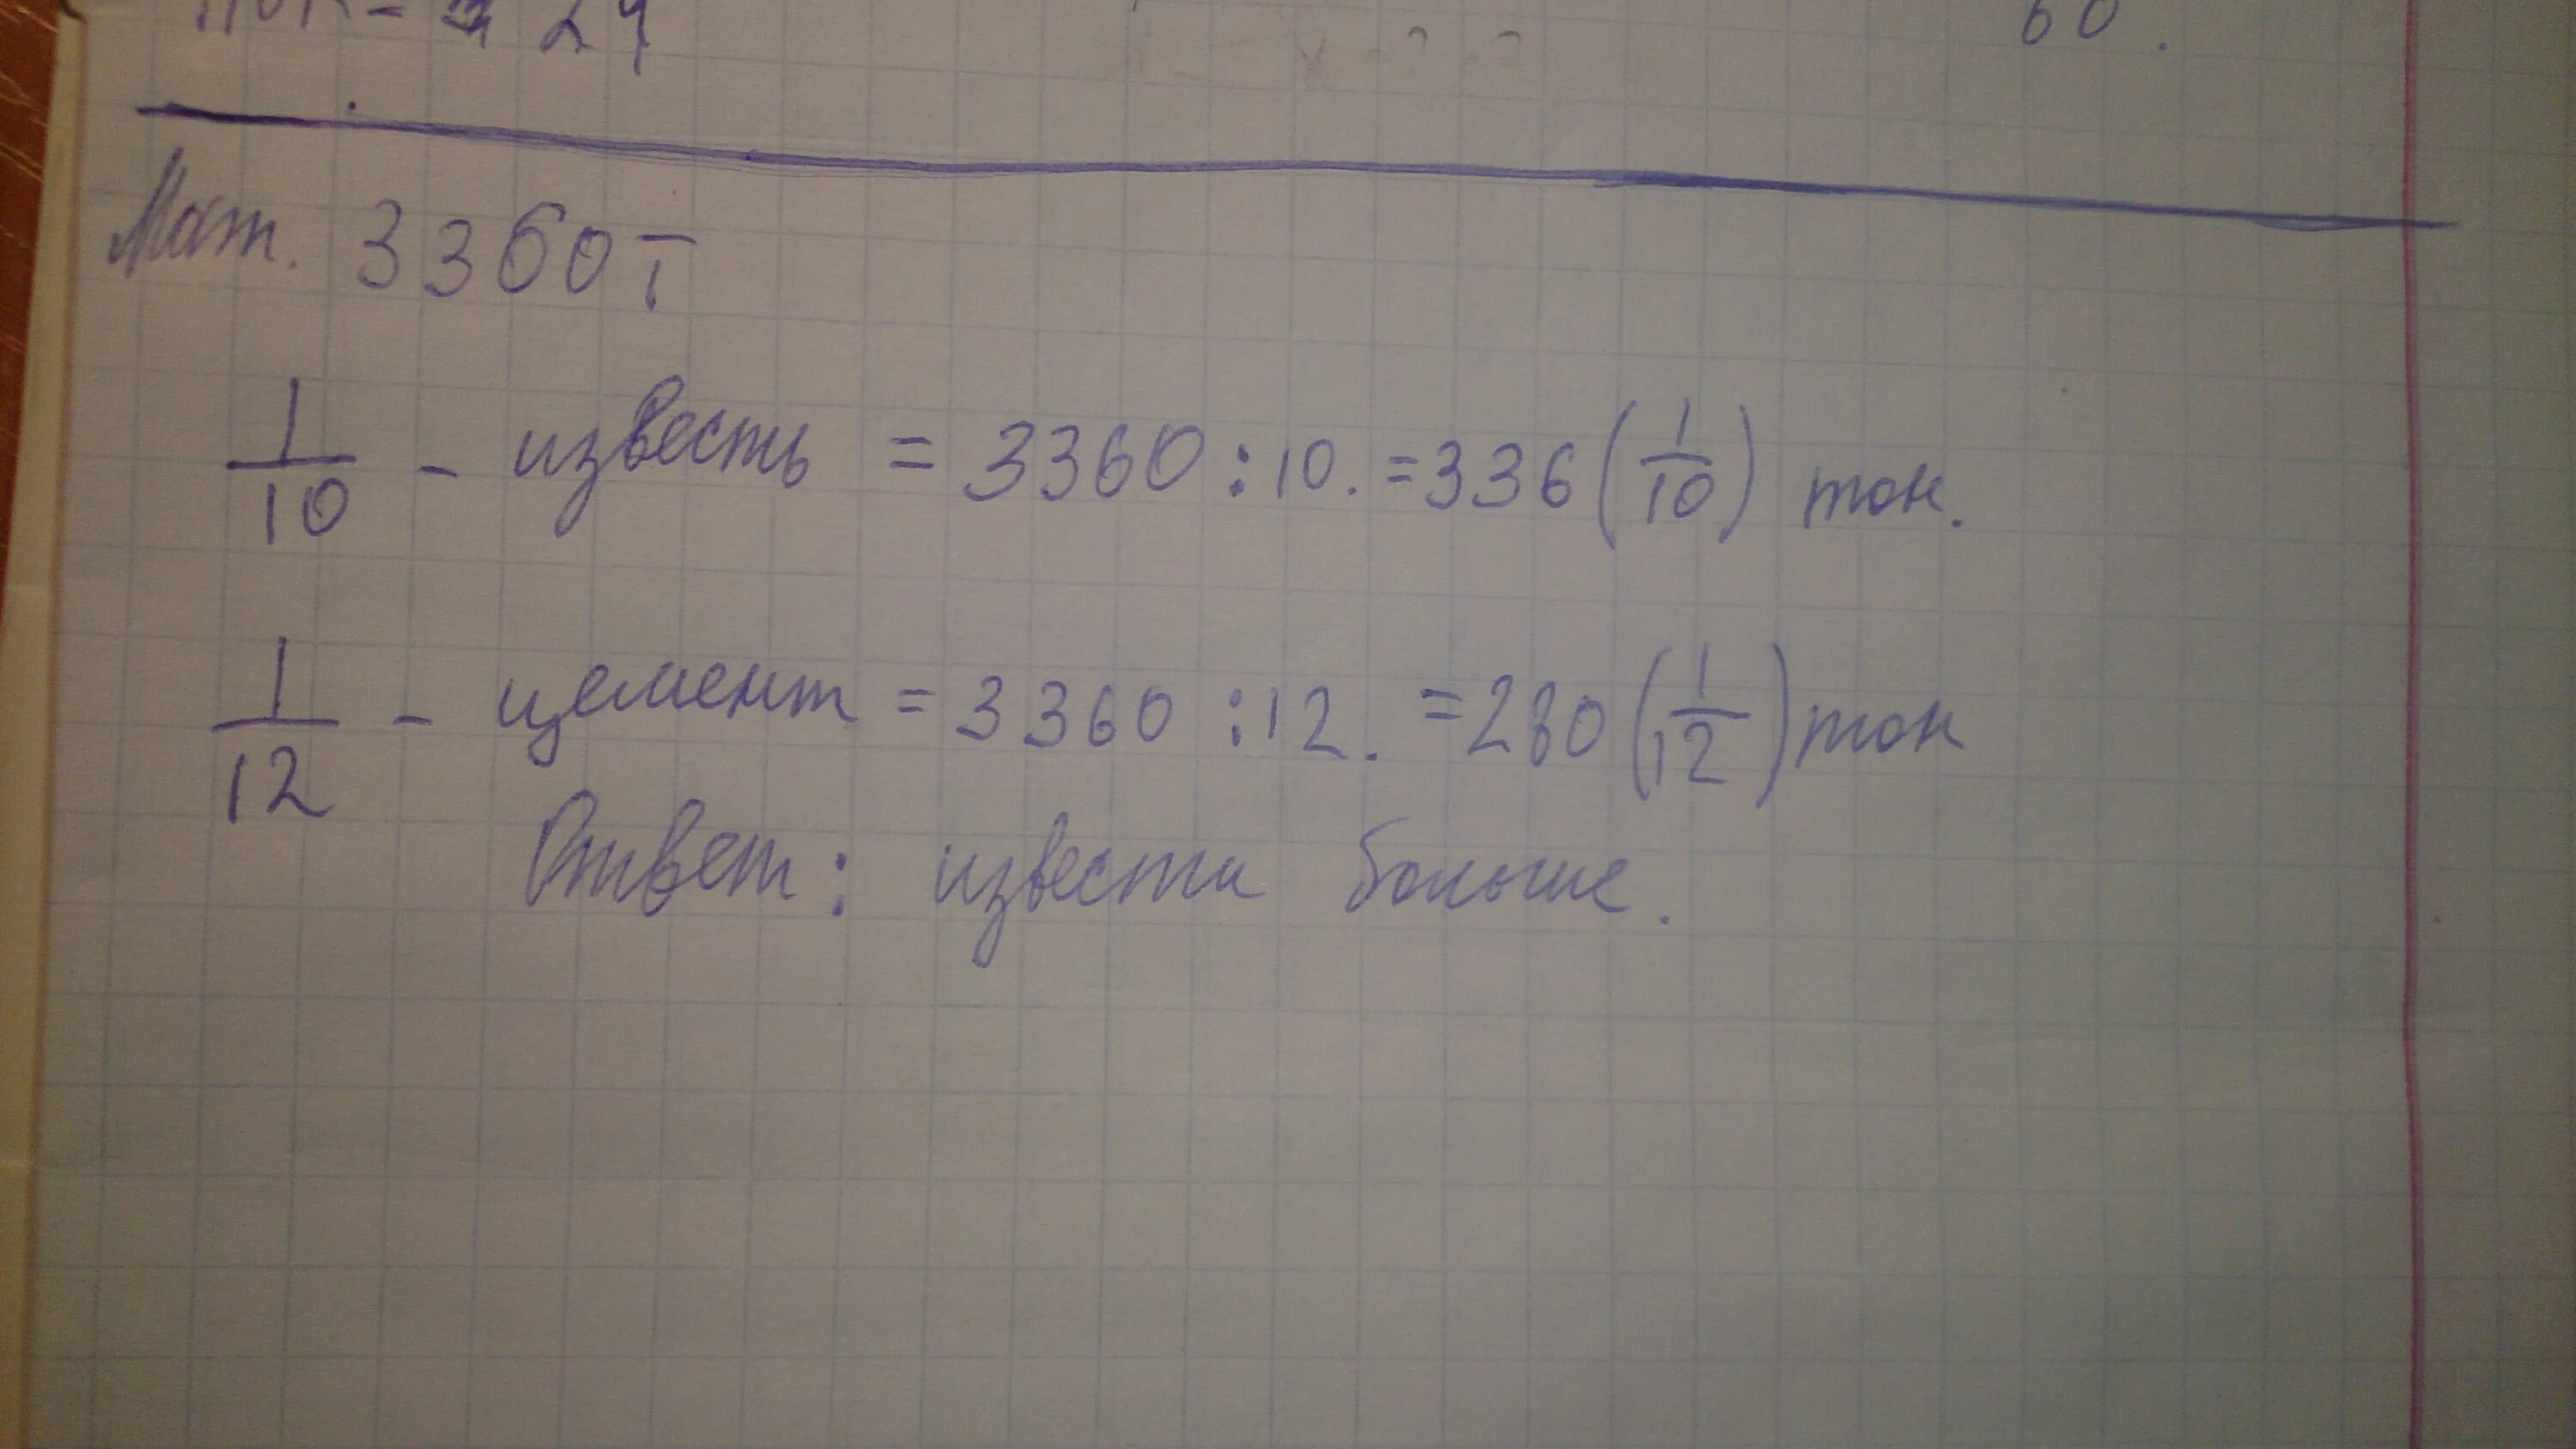 НОК = 24
60.
Мат. 3360т
1/10 - известь = 3360 : 10. = 336 (1/10) тон.
1/12 - цемент = 3360 : 12. = 280 (1/12) тон
Ответ: извести больше.